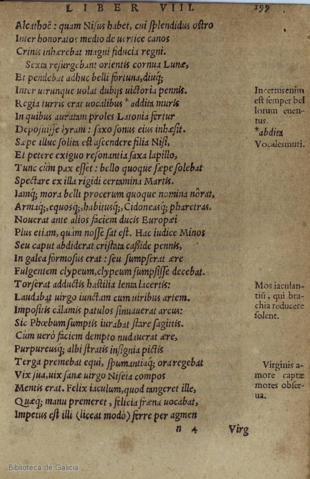 LIBER VIII. 199
Alcathoë: quam Nisus habet, cui splendidus ostro
Inter honoratos medio de uertice canos
Crinis inhærebat magni fiducia regni.
Sexta resurgebant orientis cornua Lunæ,
Et pendebat adhuc belli fortuna, diuq;
Inter utrunque uolat dubijs uictoria pennis.
Regia turris erat uocalibus * addita muris
In quibus auratam proles Latonia fertur
Deposuisse lyram: saxo sonus eius inhæsit.
Sæpe illuc solita est ascendere filia Nisi,
Et petere exiguo resonantia saxa lapillo,
Tunc cùm pax esset: bello quoque sæpe solebat
Spectare ex illa rigidi certamina Martis.
Iamq; mora belli procerum quoque nomina nôrat,
Armaq;, equosq;, habitusq;, Cidoneasq; pharetras.
Nouerat ante alios faciem ducis Europæi
Plus etiam, quàm nosse sat est. Hac iudice Minos
Seu caput abdiderat cristata casside pennis,
In galea formosus erat: seu sumpserat ære
Fulgentem clypeum, clypeum sumpsisse decebat.
Torserat adductis hastilia lenta lacertis:
Laudabat uirgo iunctam cum uiribus artem.
Impositis calamis patulos sinuauerat arcus:
Sic Phœbum sumptis iurabat stare sagittis.
Cùm uerò faciem dempto nudauerat ære,
Purpureusq; albi stratis insignia pictis
Terga premebat equi, spumantiaq; ora regebat
Vix sua, uix sanæ uirgo Niseia compos
Mentis erat. Felix iaculum, quod tangeret ille,
Quæq; manu premeret, felicia fræna uocabat,
Impetus est illi (liceat modò) ferre per agmen
n 4 Virg
Incertis enim
est semper bel
lorum euen-
tus.
*abdita
Vocales muri.
Mos iaculan-
tis, qui bra-
chia reducere
solent.
Virginis a-
more captæ
mores obser-
ua.
Biblioteca de Galicia